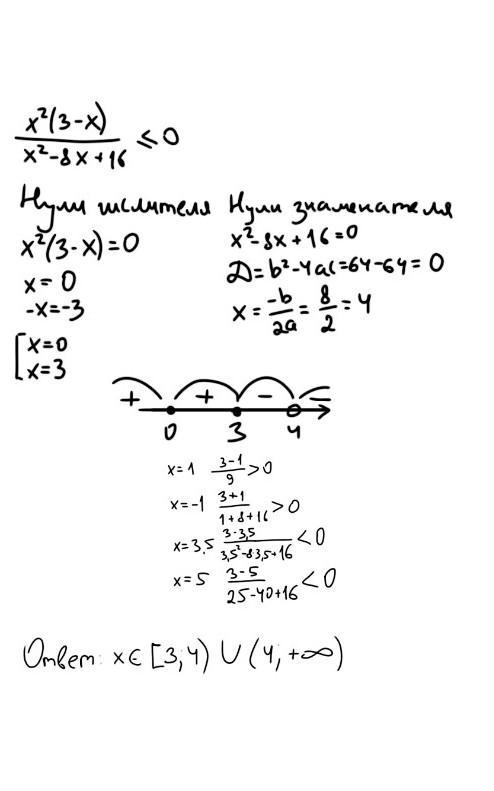 x²(3-x)/(x²-8x+16) ≤ 0
Нули числителя
x²(3-x)=0
x=0
-x=-3
[x=0
x=3
Нули знаменателя
x²-8x+16=0
D=b²-4ac=64-64=0
x=-b/2a=8/2=4
+ + - -
0 3 4
x=1 (3-1)/9>0
x=-1 (3+1)/(1+8+16)>0
x=3,5 (3-3,5)/(3,5²-8·3,5+16)<0
x=5 (3-5)/(25-40+16)<0
Ответ: x∈[3;4)∪(4;+∞)